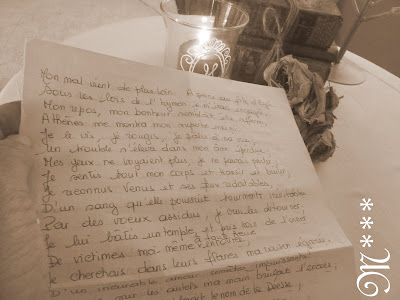 Mon mal vient de plus loin. A peine au fils d'Egée
Sous les lois de l'hymen je m'étais engagée,
Mon repos, mon bonheur semblait être affermi,
Athènes me montra mon superbe ennemi.
Je le vis, je rougis, je pâlis à sa vue;
Un trouble s'éleva dans mon âme éperdue
Mes yeux ne voyaient plus, je ne pouvais parler,
Je sentis tout mon corps et transir et brûler,
Je reconnus Vénus et ses feux redoutables,
D'un sang qu'elle poursuit tourments inévitables
Par des voeux assidus, je crus les détourner,
Je lui bâtis un temple, et pris soin de l'orner
De victimes moi-même à toute heure
entourée,
Je cherchais dans leurs flancs ma raison égarée.
D'un incurable amour remèdes impuissants!
sur les autels ma main brûlait l'encens;
le nom de la Déesse,